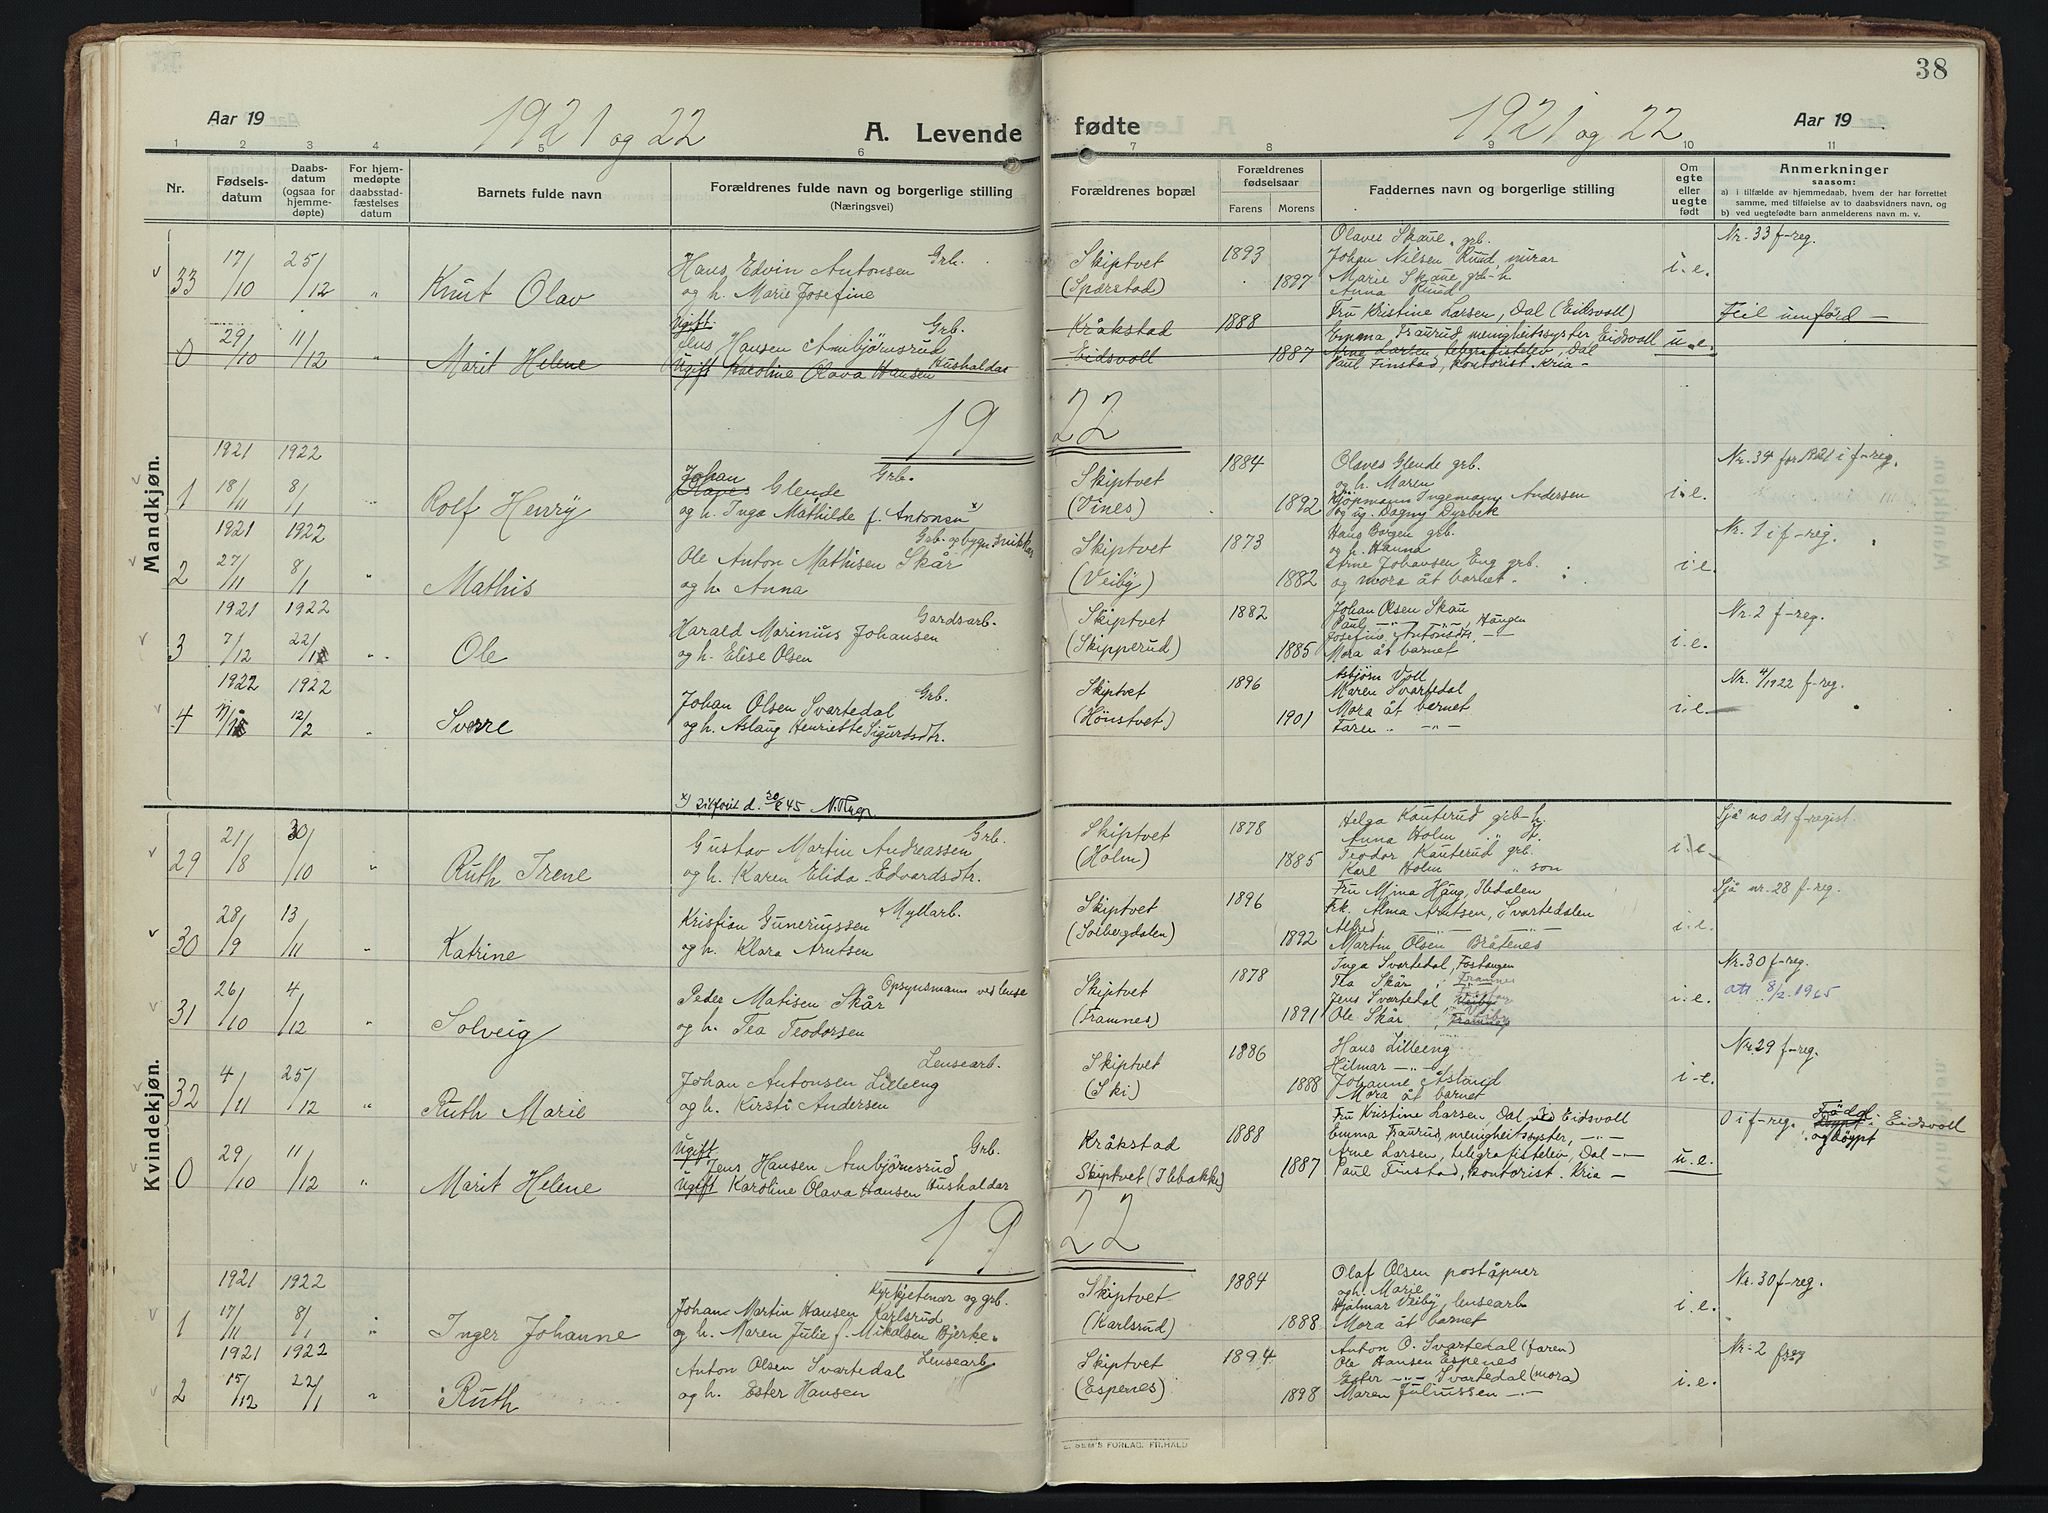 38
Aar 19
1921 og 22
A. Levende
fødte
1921 og 22
Aar 19
1 2 3 4 5 6 7 8 9 10 11
Nr.
Fødsels-
datum
Daabs-
datum
(ogsaa for
hjemme-
døpte)
For hjem-
medøpte
daabsstad-
fæstelses
datum
Barnets fulde navn
Forældrenes fulde navn og borgerlige stilling
(Næringsvei)
Forældrenes bopæl
Forældrenes
fødselsaar
Farens Morens
Faddernes navn og borgerlige stilling
Om
egte
eller
uegte
født
Anmerkninger
saasom:
a) i tilfælde av hjemmedaab, hvem der har forrettet
samme, med tilføielse av to daabsvidners navn, og
b) ved uegtefødte barn anmelderens navn m. v.
Mandkjøn.
33 17/10 25/12 " Knut Olav
Hans Edvin Antonsen Grb.
og h. Marie Josefine
Skiptvet
(Spærstad)
1893
1897
Olaves Skaue, grb.
Johan Nilsen Ruud, murar
Marie Skaue grb-h
Anna Ruud
i.e.
Nr. 33 f-reg.
0 29/10 11/12 " Marit Helene
Ugift Grb.
Jens Hansen Arnbjørnsrud
Ugift Karoline Olava Hansen Hushaldar
Kråkstad
Eidsvoll
1888
1887
Fru Kristine Larsen, Dal (Eidsvoll)
Emma Traurud, menighetssyster Eidsvoll
Arne Larsen, telegrafistelev, Dal
Paul Finstad, kontorist. Kria -
u.e.
Feil umförd -
19 22
1921 1922
1 18/11 8/1 " Rolf Henry
Johan Grb.
Olaves Glende
og h. Inga Mathilde f. Antonsen x)
Skiptvet
(Vines)
1884
1892
Olaves Glende grb.
og h. Maren
Kjöpmann Ingemann Andersen
og ug. Dagny Dyrbek
i.e.
Nr. 34 for 1921 i f-reg.
1921 1922
2 27/11 8/1 " Mathis
Grb. og bygn. snikkar
Ole Anton Mathisen Skår
og h. Anna
Skiptvet
(Veiby)
1873
1882
Hans Borgen grb.
og h. Hanna
Arne Johansen Eng grb.
og mora åt barnet.
i.e.
Nr. 1 i f-reg.
1921 1922
3 7/12 22/1 " Ole
Gardsarb.
Harald Marinius Johansen
og h. Elise Olsen
Skiptvet
(Skipperud)
1882
1885
Johan Olsen Skau
Paul -"- -"-, Haugen
Josefine Antonsdtr, -"-
Mora åt barnet
i.e.
Nr. 2 f-reg.
1922 1922
4 12/2 " Sverre
Johan Olsen Svartedal Grb.
og h. Aslaug Henriette Sigurdsdtr.
Skiptvet
(Hönstvet)
1896
1901
Asbjörn Voll
Maren Svartedal
Mora åt barnet
Faren " -"-
i.e.
Nr. 4/1922 f-reg.
Kvindekjøn.
29 21/8 30/10 " Ruth Irene
Gustav Martin Andreassen Grb.
og h. Karen Elida Edvardsdtr.
Skiptvet
(Holm)
1878
1885
Helga Kauterud grb-h.
Anna Holm " dt.
Teodor Kauterud grb.
Karl Holm " son
i.e.
Sjå no 21 f-regist.
30 28/9 13/11 " Katrine
Kristian Gunerussen Myllarb.
og h. Klara Arntsen
Skiptvet
(Solbergdalen)
1896
1892
Fru Mina Haug, Ilbdalen
Frk. Alma Arntsen, Svartedalen
Alfred -"- -"-
Martin Olsen Bråtenes
i.e.
Sjå nr. 28 f-reg.
31 26/10 4/12 " Solveig
Peder Matisen Skår Opsynsmann ved lense
og h. Tea Teodorsen
Skiptvet
(Framnes)
1878
1891
Inga Svartedal, Fostangen
Tea Skår, Framnes
Jens Svartedal
Ole Skår, Framnes
i.e.
Nr. 30 f-reg.
att. 8/2 1965
32 4/11 25/12 " Ruth Marie
Lensearb.
Johan Antonsen Lilleeng
og h. Kirsti Andersen
Skiptvet
(Ski)
1886
1888
Hans Lilleeng
Hilmar -"-
Johanne Åsland
Mora åt barnet
i.e.
Nr. 29 f-reg.
0 29/10 11/12 " Marit Helene
Ugift Grb.
Jens Hansen Arnbjörnsrud
Ugift Karoline Olava Hansen Hushaldar
Kråkstad
Skiptvet (Ilebakke)
1888
1887
Fru Kristine Larsen, Dal i Eidsvoll
Emma Traurud, menighetssyster, -"-
Arne Larsen, telegrafistelev, Dal -"-
Paul Finstad, kontorist. Kria -
u.e.
0 i f-reg. Fødd i Eidsvoll
og döypt
19 22
1921 1922
1 17/11 8/1 " Inger Johanne
Kyrkjetenar og grb.
Johan Martin Hansen Karlsrud
og h. Maren Julie f. Mikalsen Bjerke.
Skiptvet
(Karlsrud)
1884
1888
Olaf Olsen poståpner
og h. Marie
Hjalmar Veiby, lensearb.
Mora åt barnet
i.e.
Nr. 30 f-reg.
1921 1922
2 15/12 22/1 " Ruth
Anton Olsen Svartedal Lensearb
og h. Ester Hansen
Skiptvet
(Espenes)
1894
1898
Anton O. Svartedal (faren)
Ole Hansen Espenes
Ester -"- Svartedal (mora)
Maren Juliussen -"-
i.e.
Nr. 2 freg
E. SEM'S FORLAG, FR.HALD